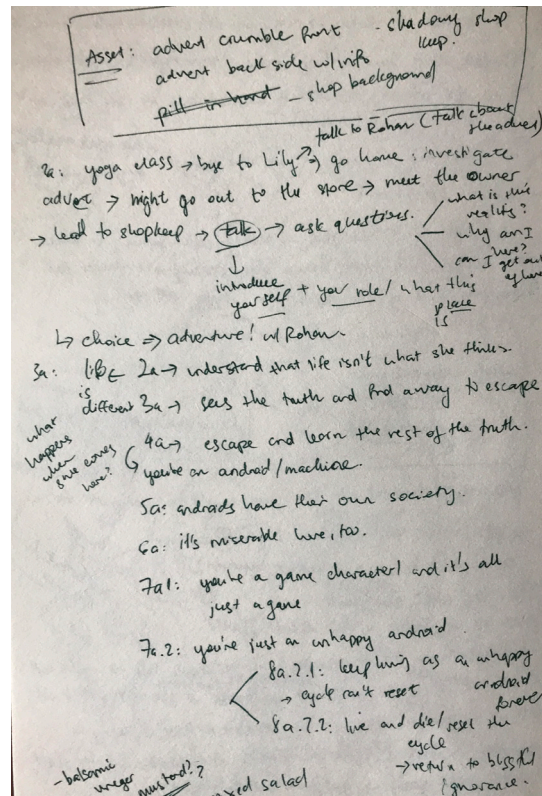 Asset: advert crumble front - shadowy shop keep.
advert back side w/ info
pill in hand - shop background
talk to Rohan (talk about the advert)
2a: yoga class → bye to Lily → go home : investigate
advert → might go out to the store → meet the owner
→ lead to shopkeep → talk → ask questions.
what is this reality?
why am I here?
can I get out of here?
introduce yourself + your role / what this place is
↳ choice ⇒ adventure! w/ Rohan.
3a: life is different
2a → understand that life isn't what she thinks.
3a → sees the truth and find a way to escape
what happens when one comes here?
4a → escape and learn the rest of the truth.
you're an android/machine.
5a: androids have their own society.
6a: it's miserable here, too.
7a1: you're a game character! and it's all
just a game
7a.2: you're just an unhappy android
8a.2.1: keep living as an unhappy android forever
→ cycle can't reset
8a.2.2: live and die/reset the cycle
→ return to blissful ignorance.
- balsamic
mustard??
salad